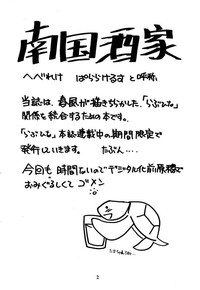 南国酒家
へべれけ ぱららけるす と呼称
当誌は、春風が描きちらかした、「らぶひな」
関係を統合するための本です。
「らぶひな」本誌連載中の期間限定で
発行していきます。 たぶん‥‥
今回も時間ないのでデジタル化前原稿で
おみぐるしくて ゴメン
2